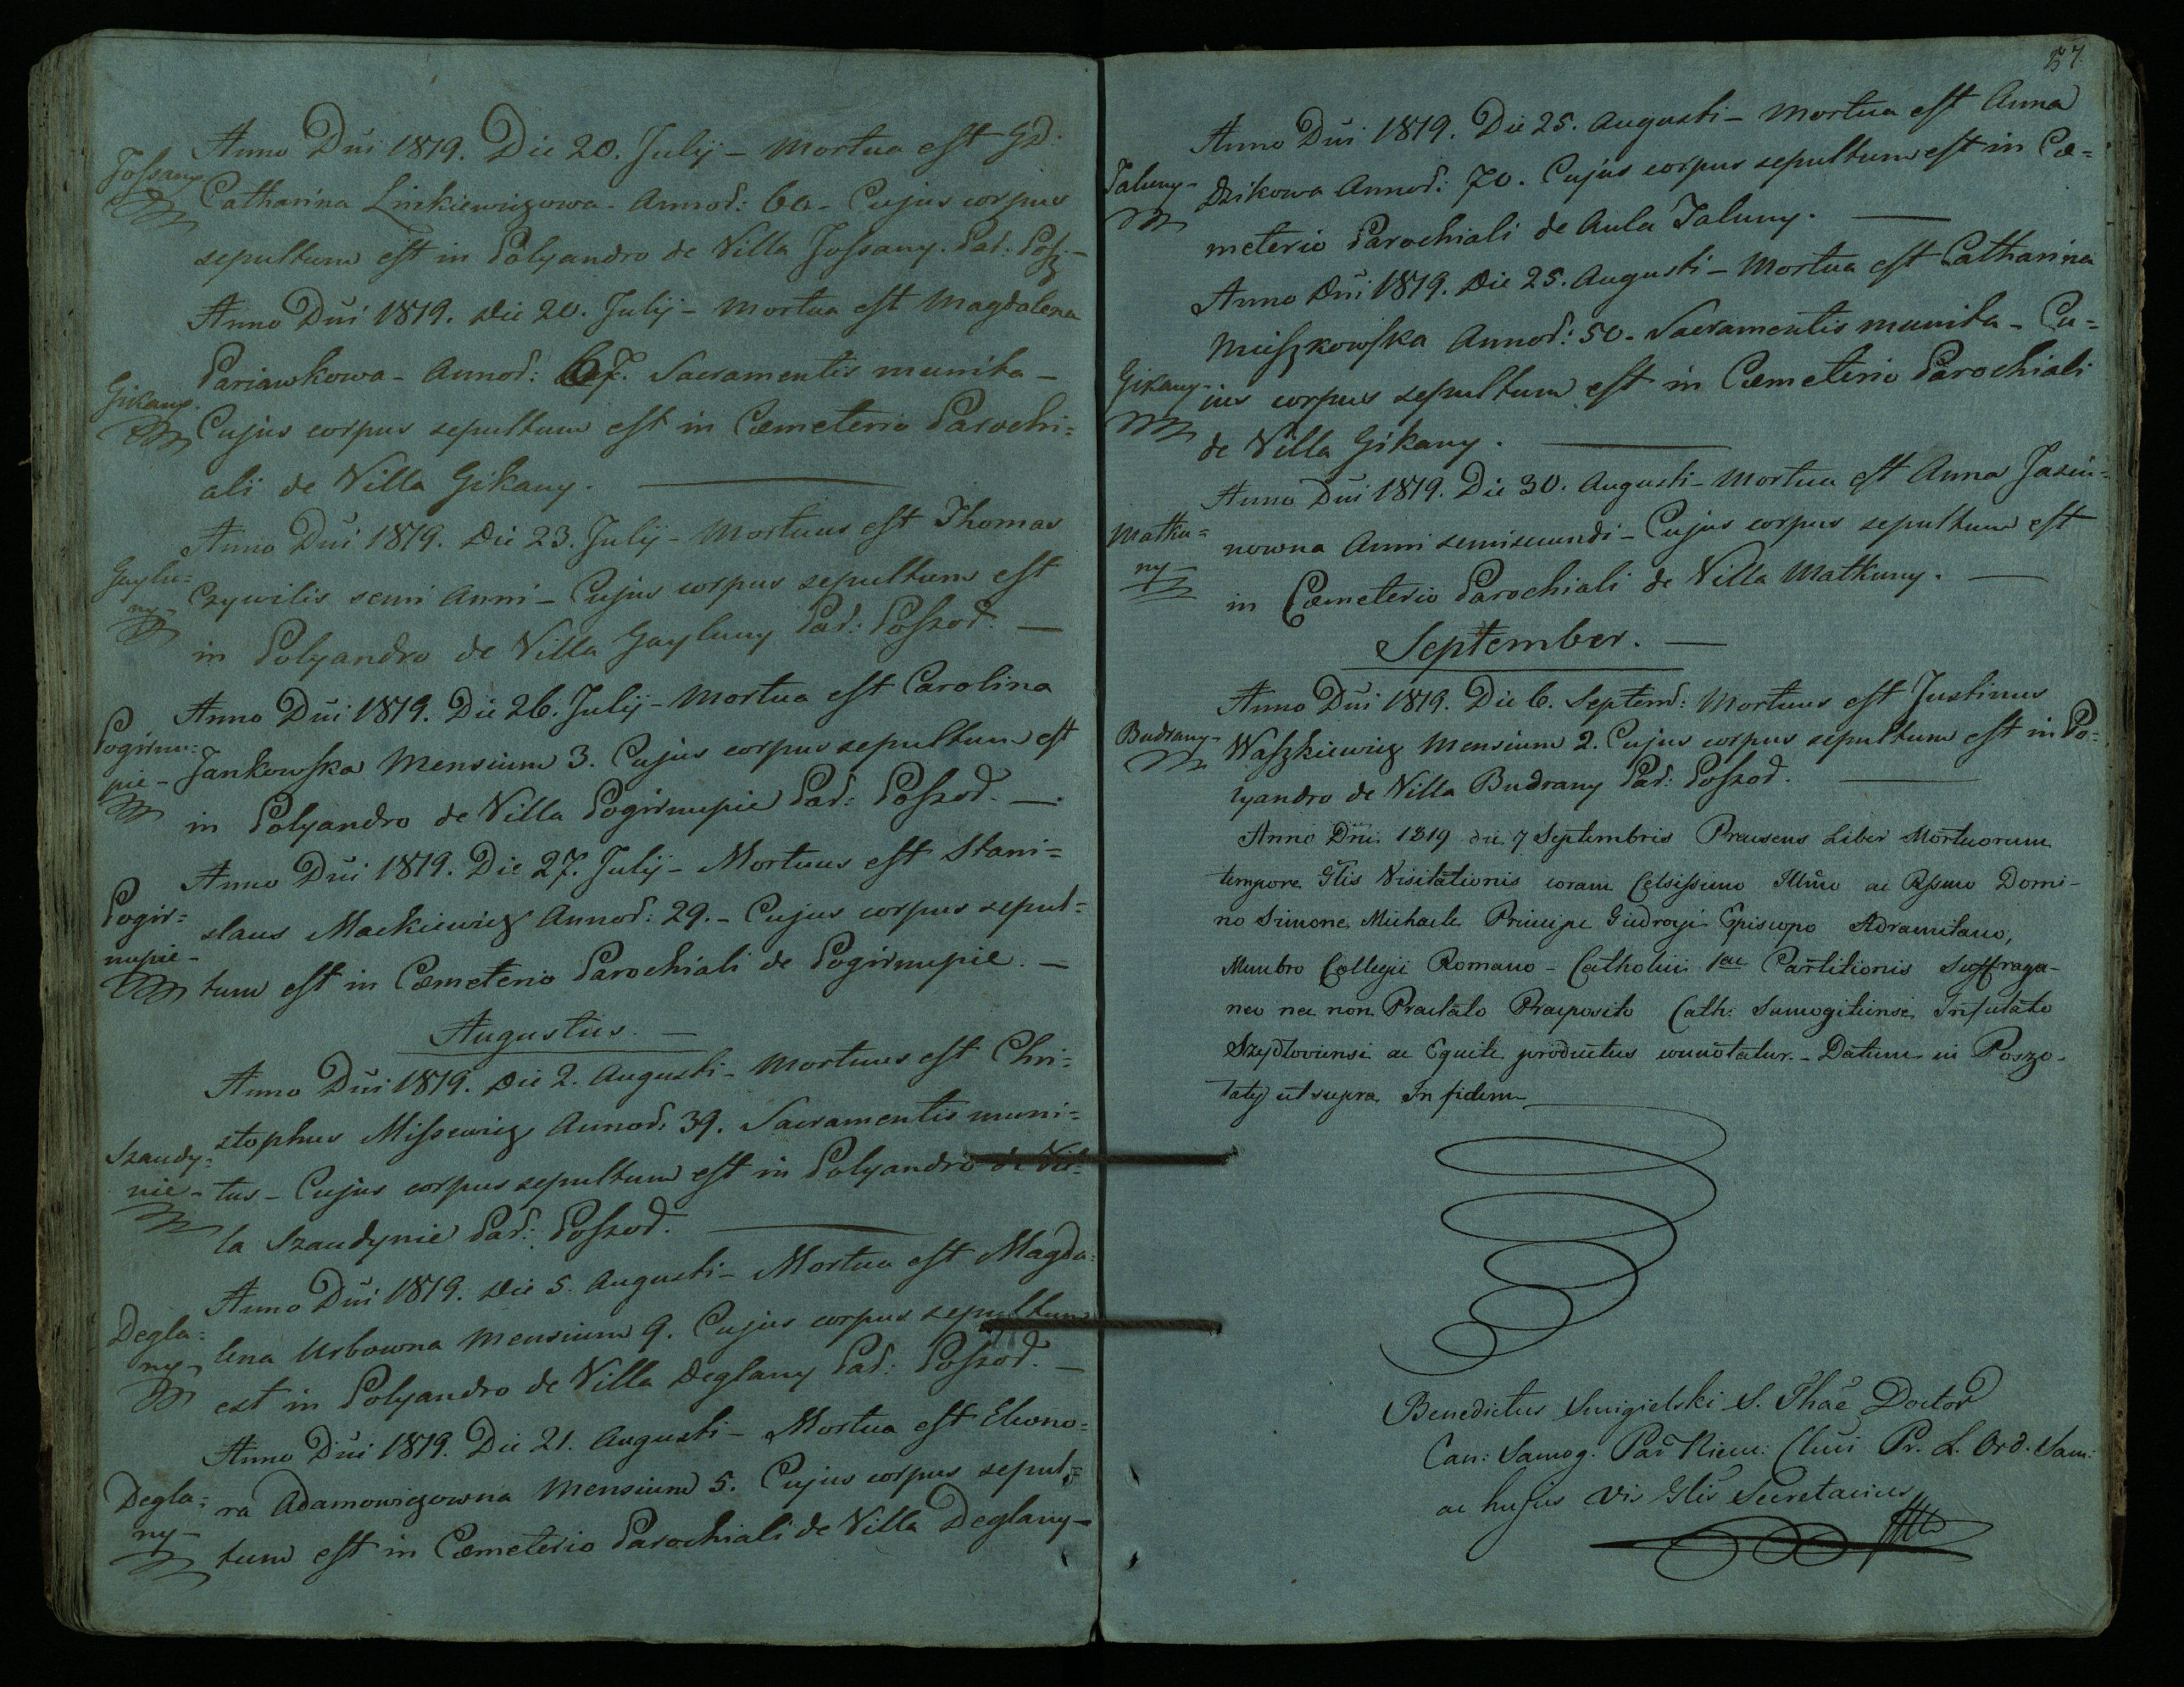 Anno Dni 1819. Die 20. Julij - Mortua est GD:
Jossany
Catharina Linkiewiczowa - Annor: 60 - Cujus corpus
sepultum est in Polyandro de Villa Jossany. Par: Posz. -
Anno Dni 1819. Die 20. Julij - Mortua est Magdalena
Pariawkowa - Annor: 67. Sacramentis munita -
Gikany.
Cujus corpus sepultum est in Cæmeterio Parochi=
ali de Villa Gikany.
Anno Dni 1819. Die 23. Julij - Mortuus est Thomas
Gaylu=
ny -
Czywilis semi Anni - Cujus corpus sepultum est
in Polyandro de Villa Gayluny Par: Poszod. -
Anno Dni 1819. Die 26. Julij - Mortua est Carolina
Pogirnu=
pie -
Jankowska Mensium 3. Cujus corpus sepultum est
in Polyandro de Villa Pogirnupie Par: Poszod. -.
Anno Dni 1819. Die 27. Julij - Mortuus est Stani=
Pogir=
nupie -
slaus Mackiewicz Annor: 29. - Cujus corpus sepul=
tum est in Cæmeterio Parochiali de Pogirnupie. -
Augustus. -
Anno Dni 1819. Die 2. Augusti - Mortuus est Chri=
stophus Missewicz Annor: 39. Sacramentis muni=
Szaudy=
nie -
tus - Cujus corpus sepultum est in Polyandro de Vil=
la Szaudynie Par: Poszod.
Anno Dni 1819. Die 5. Augusti - Mortua est Magda=
Degla=
ny -
lena Urbowna Mensium 9. Cujus corpus sepultum
est in Polyandro de Villa Deglany Par: Poszod. -
Anno Dni 1819. Die 21. Augusti - Mortua est Eleono=
Degla=
ny -
ra Adamowiczowna Mensium 5. Cujus corpus sepul=
tum est in Cæmeterio Parochiali de Villa Deglany -
37.
Anno Dni 1819. Die 25. Augusti - Mortua est Anna
Taluny -
Dzikowa Annor: 70. Cujus corpus sepultum est in Cæ=
meterio Parochiali de Aula Taluny.
Anno Dni 1819. Die 25. Augusti - Mortua est Catharina
Muiszkowska Annor: 50. Sacramentis munita - Cu=
Gikany -
jus corpus sepultum est in Cæmeterio Parochiali
de Villa Gikany.
Anno Dni 1819. Die 30. Augusti - Mortua est Anna Jasiu=
Matku=
ny -
nowna Anni semisecundi - Cujus corpus sepultum est
in Cæmeterio Parochiali de Villa Matkuny. -
September. -
Anno Dni 1819. Die 6. Septemb: Mortuus est Justinus
Budrany -
Waszkiewicz Mensium 2. Cujus corpus sepultum est in Po=
lyandro de Villa Budrany Par: Poszod.
Anno Dni 1819 die 7 Septembris Præsens Liber Mortuorum
tempore Glis Visitationis coram Celsissimo Illmo ac Rssmo Domi-
no Simone Michaele Principe Giedroyć Episcopo Adramitano,
Membro Collegii Romano - Catholici 1ae Partitionis Suffraga-
neo nec non Praelato Praeposito Cath: Samogitiensi Infulato
Szydloviensi ac Equite productus connotatur. - Datum in Poszo-
laty ut supra In fidem
Benedictus Smigielski S. Thae Doctor
Can: Samog. Par Niem: Cluci Pr. L. Ord. Sam:
ac hujus Vis Glis Secretarius